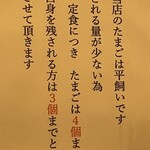 当店のたまごは平飼いです
される量が少ない為
定食につき　たまごは4個ま
白身を残される方は3個までと
せて頂きます